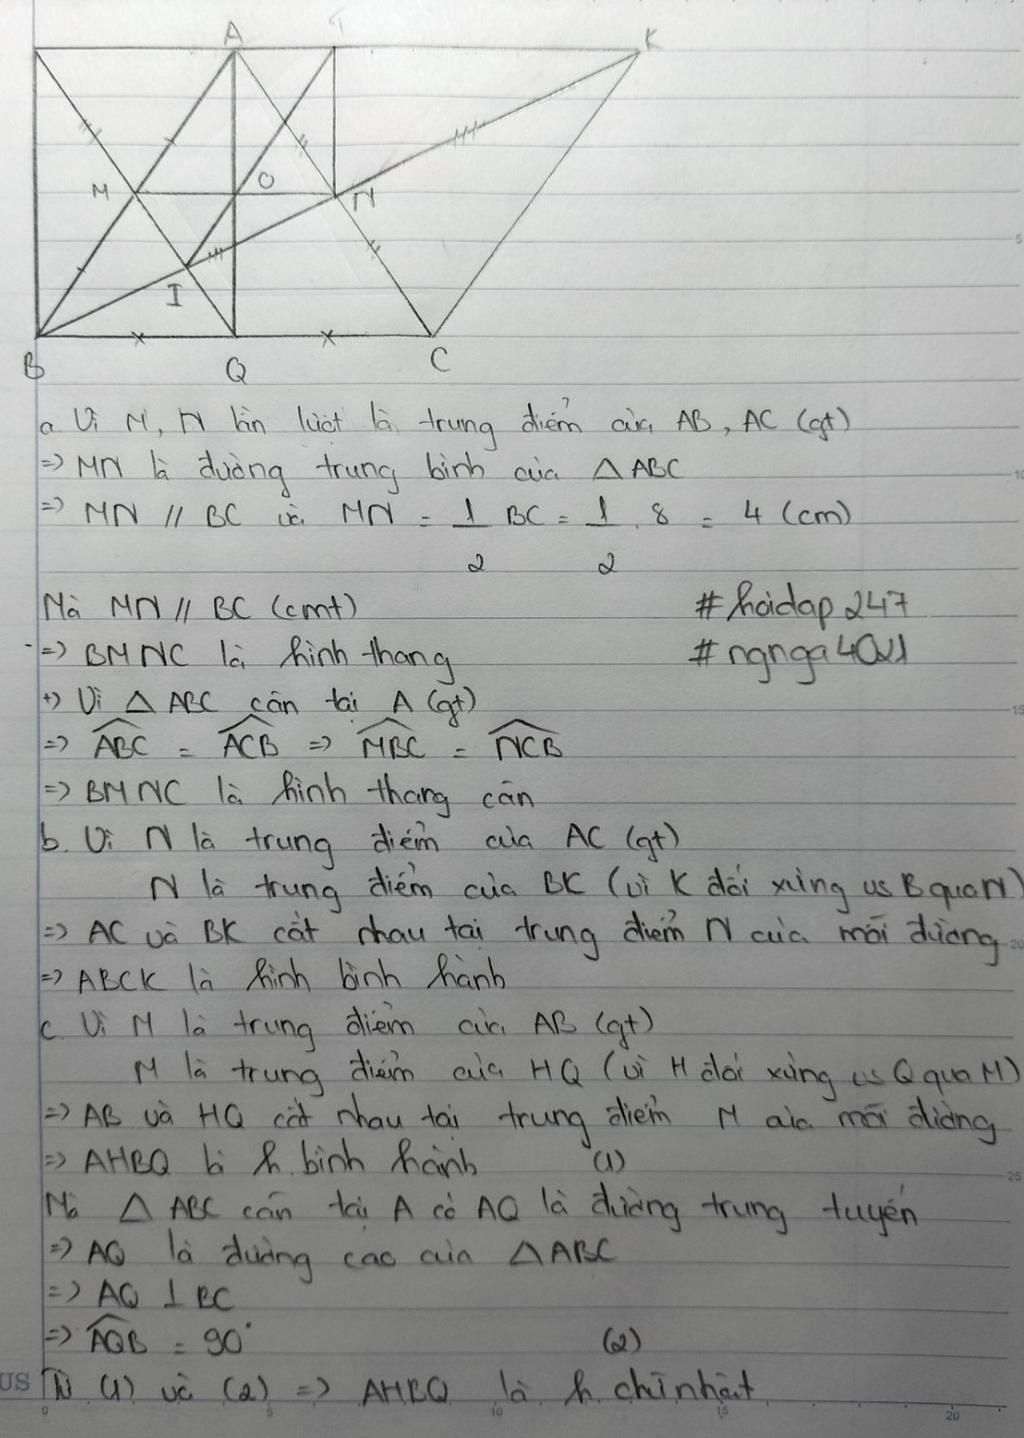 A T K
M O N
I
B Q C
a. Vì M, N lần lượt là trung điểm của AB, AC (gt)
=> MN là đường trung bình của △ ABC
=> MN // BC và MN = 1/2 BC = 1/2 . 8 = 4 (cm)
Mà MN // BC (cmt)
#hoidap247
=> BMNC là hình thang
#ngnga4021
+) Vì △ ABC cân tại A (gt)
=> \widehat{ABC} = \widehat{ACB} => \widehat{MBC} = \widehat{NCB}
=> BMNC là hình thang cân
b. Vì N là trung điểm của AC (gt)
N là trung điểm của BK (vì K đối xứng vs B qua N)
=> AC và BK cắt nhau tại trung điểm N của mỗi đường
=> ABCK là hình bình hành
c. Vì M là trung điểm của AB (gt)
M là trung điểm của HQ (vì H đối xứng vs Q qua M)
=> AB và HQ cắt nhau tại trung điểm M của mỗi đường
=> AHBQ là h.bình hành (1)
Mà △ ABC cân tại A có AQ là đường trung tuyến
=> AQ là đường cao của △ ABC
=> AQ ⊥ BC
=> \widehat{AQB} = 90° (2)
Từ (1) và (2) => AHBQ là h.chữ nhật
US
0 5 10 15 20
5
10
15
20
25